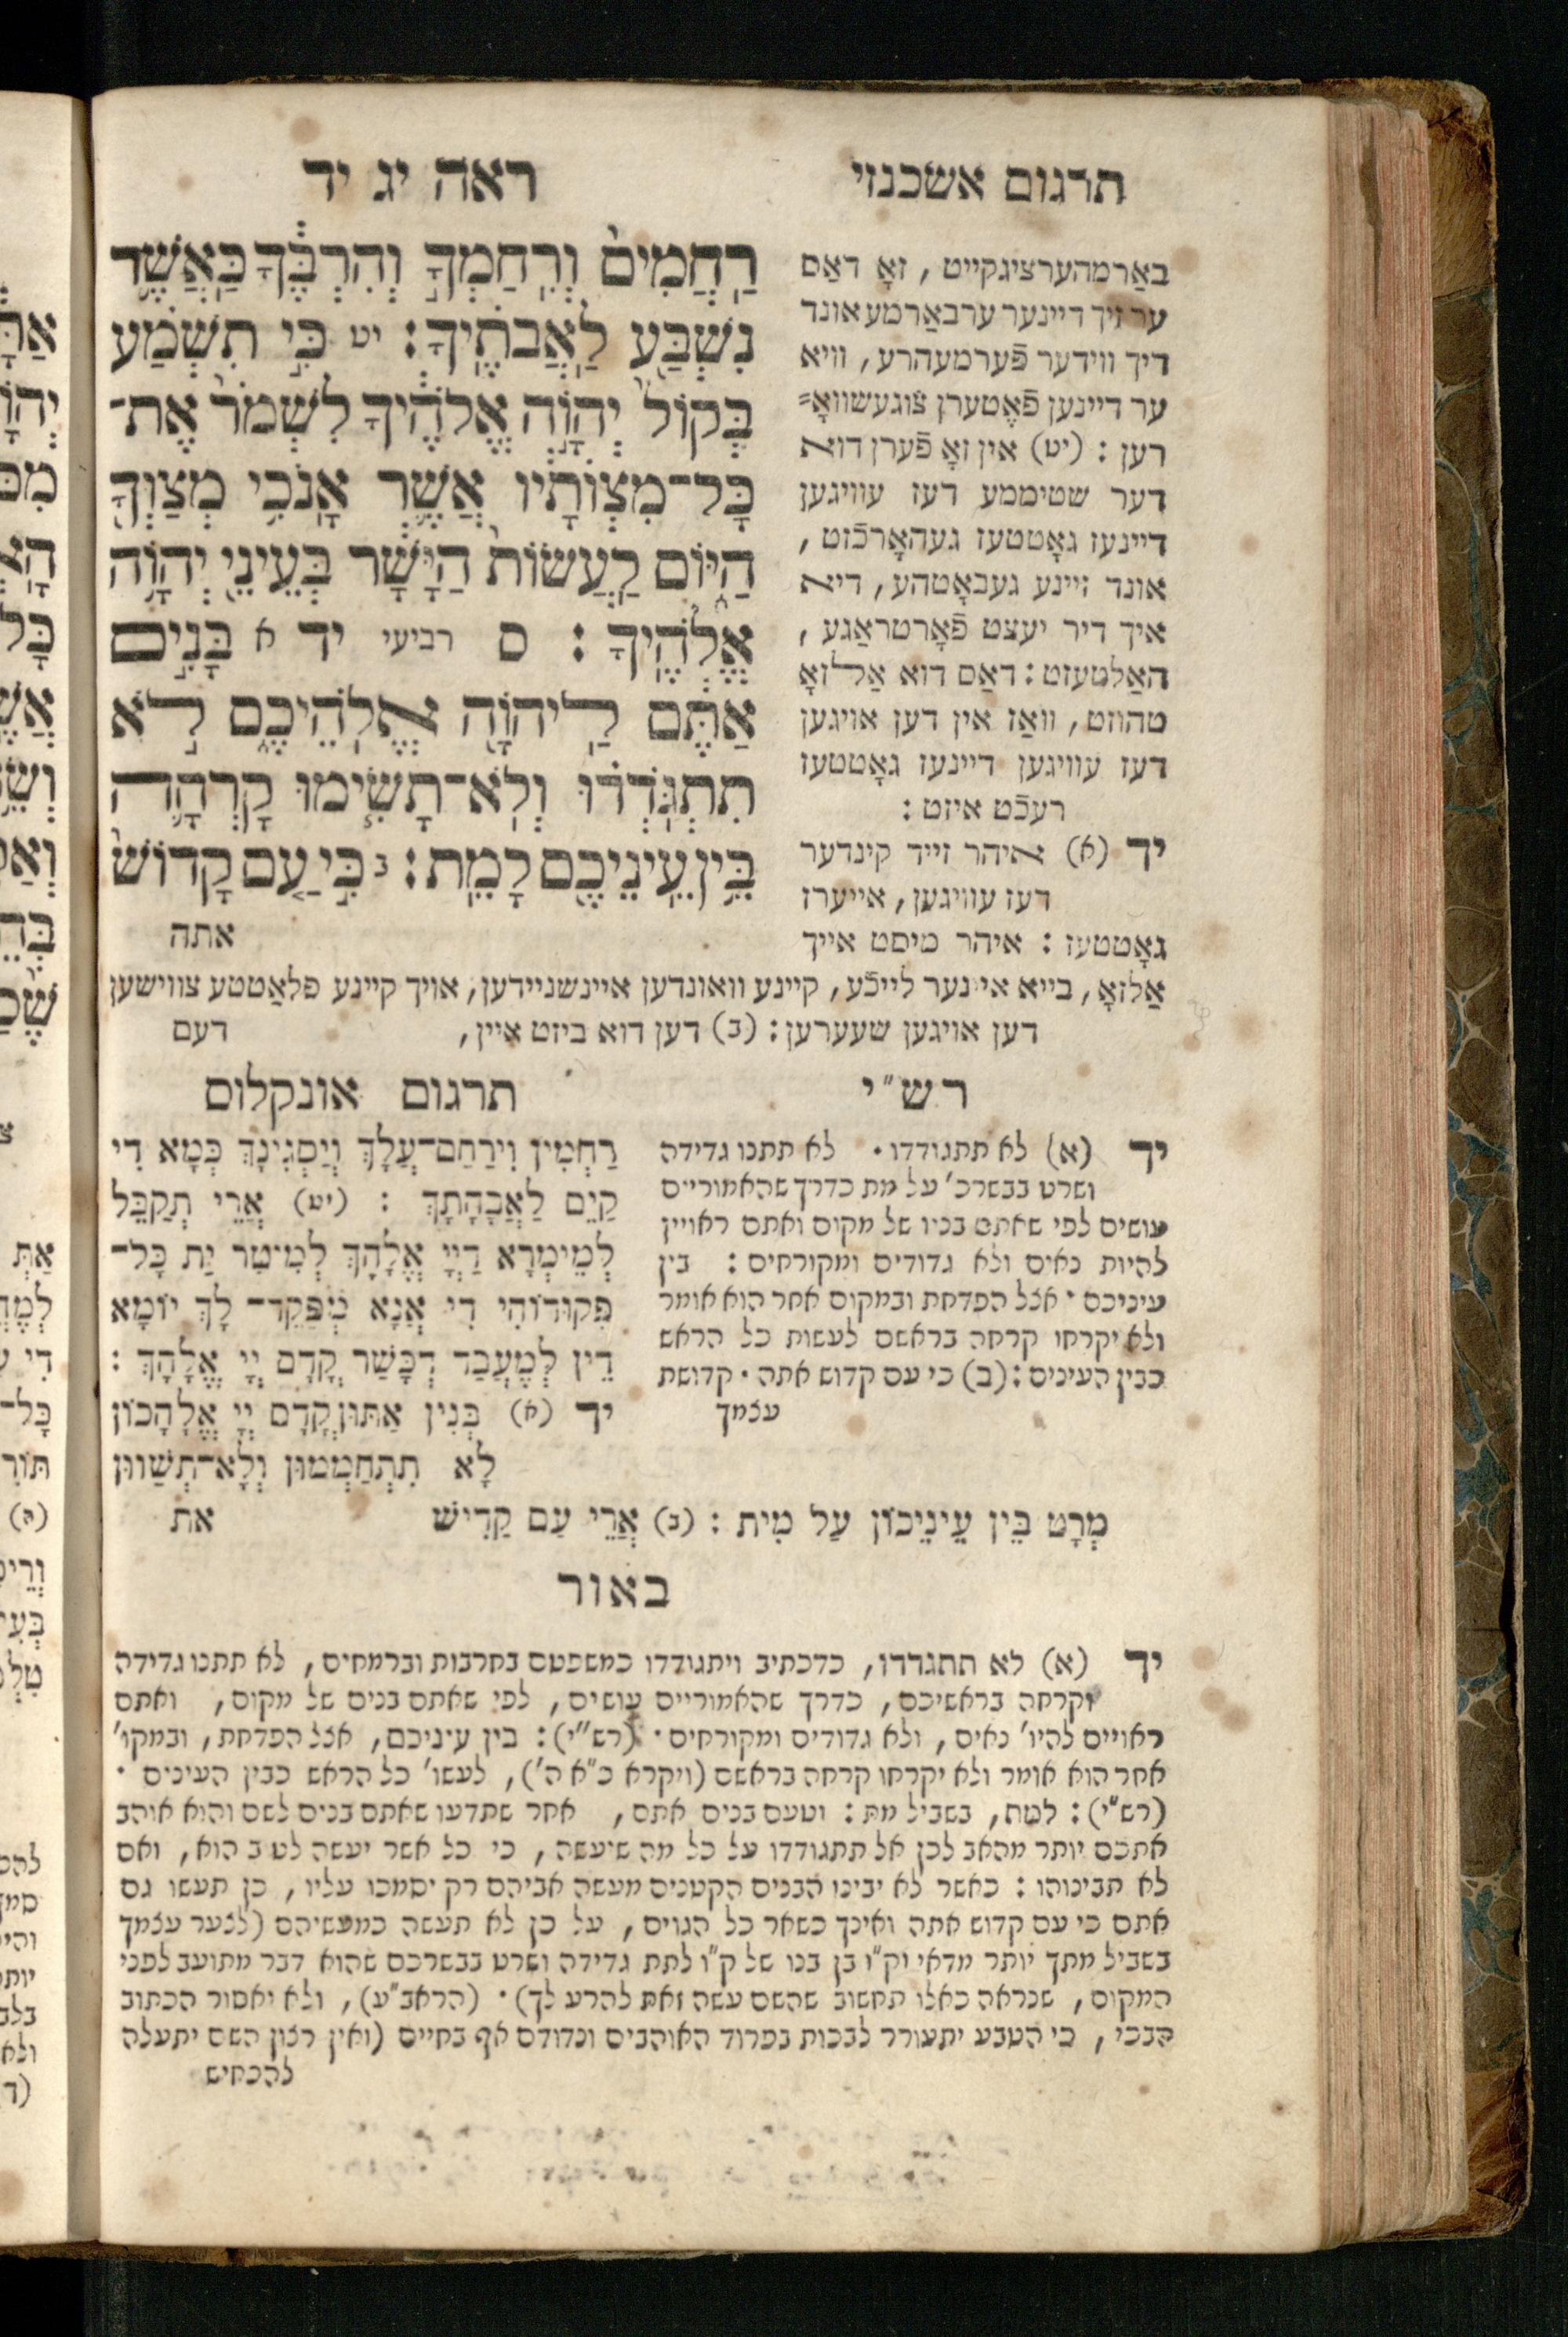 תרגום אשכנזי
ראה יג יד
רַחֲמִים֙ וְרִֽחַמְךָ֣ וְהִרְבֶּ֔ךָ כַּאֲשֶׁ֥ר
נִשְׁבַּ֖ע לַאֲבֹתֶֽיךָ׃ יט כִּ֣י תִשְׁמַ֗ע
בְּקוֹל֙ יְהוָֹ֣ה אֱלֹהֶ֔יךָ לִשְׁמֹר֙ אֶת־
כָּל־מִצְוֺתָ֔יו אֲשֶׁ֛ר אָנֹכִ֥י מְצַוְּךָ֖
הַיּ֑וֹם לַעֲשׂוֹת֙ הַיָּשָׁ֔ר בְּעֵינֵ֖י יְהוָֹ֥ה
אֱלֹהֶֽיךָ׃ ס רביעי יד א בָּנִ֣ים
אַתֶּ֔ם לַיהוָֹ֖ה אֱלֹהֵיכֶ֑ם לֹ֣א
תִתְגֹּֽדְד֗וּ וְלֹֽא־תָשִׂ֧ימוּ קָרְחָ֛ה
בֵּ֥ין עֵינֵיכֶ֖ם לָמֵֽת׃ ב כִּ֣י עַ֤ם קָדוֹשׁ֙
אתה
באַרמהערציגקייט, זאָ דאַס
ער זיך דיינער ערבאַרמע אונד
דיך ווידער פֿערמעהרע, וויא
ער דיינען פֿאֶטערן צוגעשוואָ=
רען: (יט) אין זאָ פֿערן דוא
דער שטיממע דעז עוויגען
דיינעז גאָטטעז געהאָרכֿזט,
אונד זיינע געבאָטהע, דיא
איך דיר יעצט פֿאָרטראַגע,
האַלטעזט: דאַס דוא אַלזאָ
טהוזט, וואַז אין דען אויגען
דעז עוויגען דיינעז גאָטטעז
רעכֿט איזט:
יד (א) איהר זייד קינדער
דעז עוויגען, אייערז
גאָטטעז: איהר מיסט אייך
אַלזאָ, בייא איינער לייכֿע, קיינע וואונדען איינשניידען, אויך קיינע פלאַטטע צווישען
דען אויגען שעערען: (ב) דען דוא ביזט איין,
דעם
רש"י
יד (א) לא תתגודדו. לא תתנו גדידה
ושרט בבשרכ' על מת כדרך שהאמוריים
עושים לפי שאתם בניו של מקום ואתם ראויין
להיות נאים ולא גדודים ומקורחים: בין
עיניכם. אצל הפדחת ובמקום אחר הוא אומר
ולא יקרחו קרחה בראשם לעשות כל הראש
כבין העינים: (ב) כי עם קדוש אתה. קדושת
עצמך
תרגום אונקלוס
רַחְמִין וִירַחֵם־עֲלָךְ וְיַסְגִינָךְ כְּמָא דִי
קַיֵם לַאֲבָהָתָךְ: (יט) אֲרֵי תְקַבֵּל
לְמֵימְרָא דַיְיָ אֱלָהָךְ לְמִיטַר יַת כָּל־
פִּקוּדוֹהִי דִי אֲנָא מְפַקֵּד־ לָךְ יוֹמָא
דֵין לְמֶעֱבַד דְּכָשַׁר קֳדָם יְיָ אֱלָהָךְ:
יד (א) בְּנִין אַתּוּן קֳדָם יְיָ אֱלָהֲכוֹן
לָא תִתְחַמְמוּן וְלָא־תְשַׁווּן
מְרָט בֵּין עֵינֵיכוֹן עַל מִית: (ב) אֲרֵי עַם קַדִישׁ
את
באור
יד (א) לא תתגדדו, כדכתיב ויתגודדו כמשפטם בחרבות וברמחים, לא תתנו גדידה
וקרחה בראשיכם, כדרך שהאמוריים עושים, לפי שאתם בנים של מקום, ואתם
ראויים להיו' נאים, ולא גדודים ומקורחים. (רש"י): בין עיניכם, אצל הפדחת, ובמקו'
אחר הוא אומר ולא יקרחו קרחה בראשם (ויקרא כ"א ה'), לעשו' כל הראש כבין העינים.
(רש"י): למת, בשביל מת: וטעם בנים אתם, אחר שתדעו שאתם בנים לשם והוא אוהב
אתכם יותר מהאב לכן אל תתגודדו על כל מה שיעשה, כי כל אשר יעשה לטוב הוא, ואם
לא תבינוהו: כאשר לא יבינו הבנים הקטנים מעשה אביהם רק יסמכו עליו, כן תעשו גם
אתם כי עם קדוש אתה ואינך כשאר כל הגוים, על כן לא תעשה כמעשיהם (לצער עצמך
בשביל מתך יותר מדאי וק"ו בן בנו של ק"ו לתת גדידה ושרט בבשרכם שהוא דבר מתועב לפני
המקום, שנראה כאלו תחשוב שהשם עשה זאת להרע לך). (הראב"ע), ולא יאסור הכתוב
הבכי, כי הטבע יתעורר לבכות בפרוד האוהבים ונדודם אף בחיים (ואין רצון השם יתעלה
להכחיש